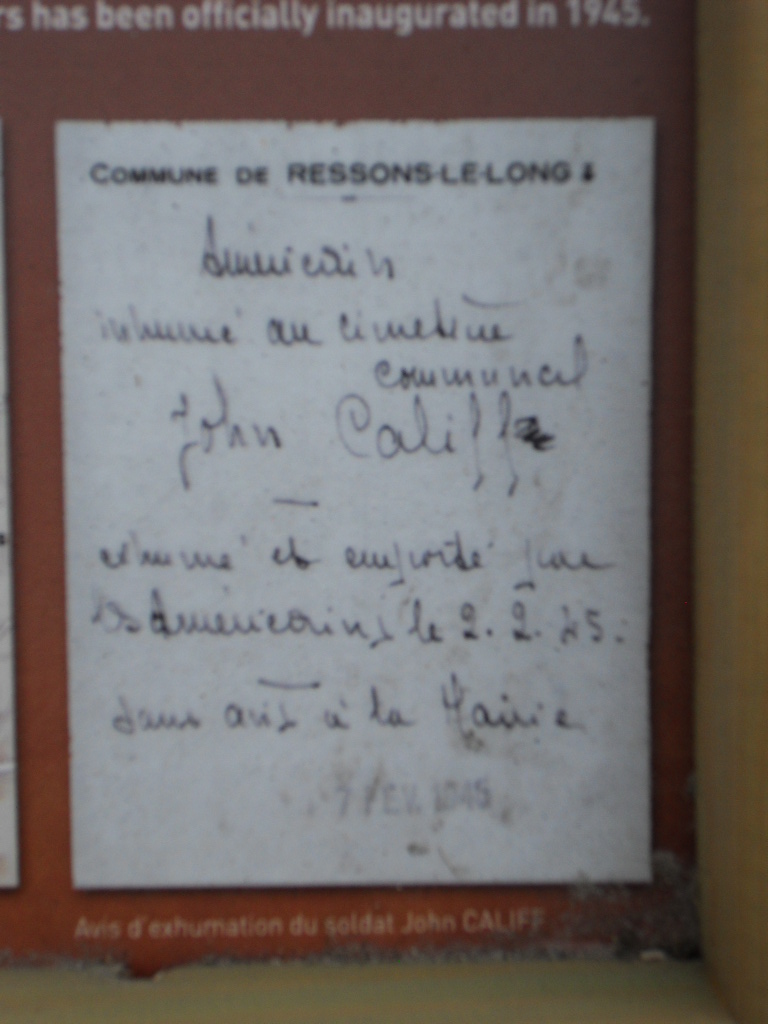 rs has been officially inaugurated in 1945.
COMMUNE DE RESSONS-LE-LONG
Américain
inhumé au cimetière
communal
John Califf
exhumé et emporté par
les Américains le 2.2.45.
sans avis à la Mairie
7 FEV. 1945
Avis d'exhumation du soldat John CALIFF